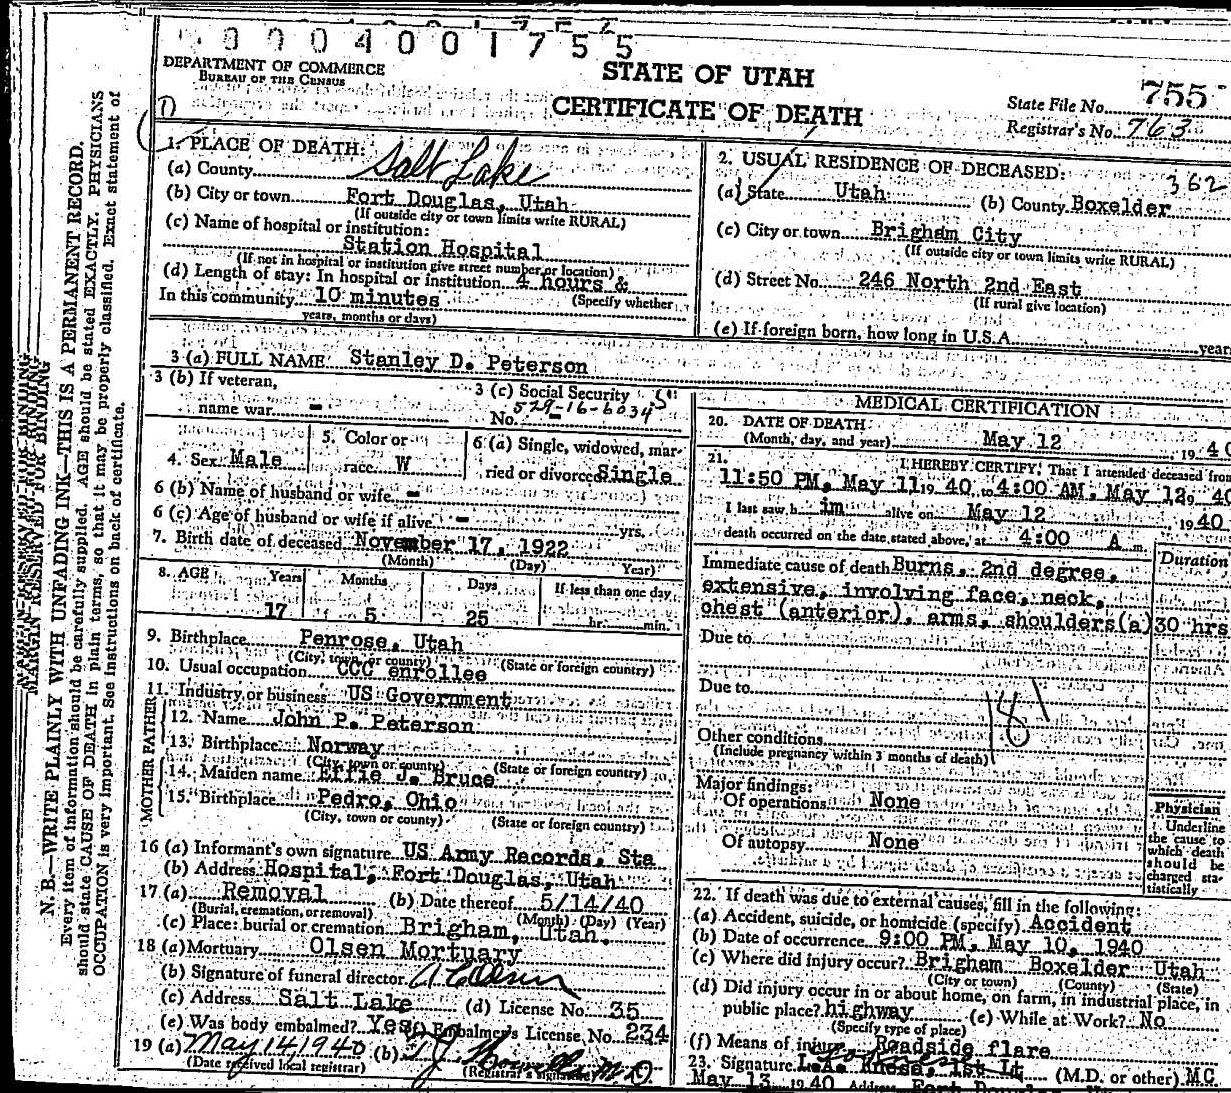 0004001755
DEPARTMENT OF COMMERCE
BUREAU OF THE CENSUS
STATE OF UTAH
CERTIFICATE OF DEATH
State File No. 755
Registrar's No. 763
1. PLACE OF DEATH:
(a) County Salt Lake
(b) City or town Fort Douglas, Utah
(If outside city or town limits write RURAL)
(c) Name of hospital or institution:
Station Hospital
(If not in hospital or institution give street number or location)
(d) Length of stay: In hospital or institution 4 hours &
In this community 10 minutes (Specify whether
years, months or days)
2. USUAL RESIDENCE OF DECEASED:
362
(a) State Utah (b) County Boxelder
(c) City or town Brigham City
(If outside city or town limits write RURAL)
(d) Street No. 246 North 2nd East
(If rural give location)
(e) If foreign born, how long in U.S.A. years
3 (a) FULL NAME Stanley D. Peterson
3 (b) If veteran,
name war -
3 (c) Social Security
No. 529-16-6034
4. Sex Male
5. Color or
race W
6 (a) Single, widowed, mar-
ried or divorced Single
6 (b) Name of husband or wife -
6 (c) Age of husband or wife if alive - yrs.
7. Birth date of deceased November 17, 1922
(Month) (Day) Year)
8. AGE Years Months Days If less than one day
17 5 25 hr. min.
9. Birthplace Penrose, Utah
(City, town, or county) (State or foreign country)
10. Usual occupation CCC enrollee
11. Industry or business US Government
FATHER
12. Name John P. Peterson
13. Birthplace Norway
(City, town or county) (State or foreign country)
MOTHER
14. Maiden name Effie J. Bruce
15. Birthplace Pedro, Ohio
(City, town or county) (State or foreign country)
16 (a) Informant's own signature US Army Records, Sta
(b) Address Hospital, Fort Douglas, Utah
17 (a) Removal (b) Date thereof 5/14/40
(Burial, cremation, or removal) (Month) (Day) (Year)
(c) Place: burial or cremation Brigham, Utah.
18 (a) Mortuary Olsen Mortuary
(b) Signature of funeral director
(c) Address Salt Lake (d) License No. 35
(e) Was body embalmed? Yes Embalmer's License No. 234
19 (a) May 14, 1940 (b) M.D.
(Date received local registrar) (Registrar's signature)
MEDICAL CERTIFICATION
20. DATE OF DEATH
(Month, day, and year) May 12, 1940
21. I HEREBY CERTIFY, That I attended deceased from
11:50 PM, May 11 1940 to 4:00 AM. May 12 19 40
I last saw h im alive on May 12 1940
death occurred on the date stated above, at 4:00 A m.
Duration
Immediate cause of death Burns, 2nd degree,
extensive, involving face, neck,
chest (anterior), arms, shoulders(a) 30 hrs
Due to
Due to
181
Other conditions
(Include pregnancy within 3 months of death)
Major findings:
Of operations None
Of autopsy None
Physician
Underline
the cause to
which death
should be
charged sta-
tistically
22. If death was due to external causes, fill in the following:
(a) Accident, suicide, or homicide (specify) Accident
(b) Date of occurrence 9:00 PM, May 10, 1940
(c) Where did injury occur? Brigham Boxelder Utah
(City or town) (County) (State)
(d) Did injury occur in or about home, on farm, in industrial place, in
public place? highway (e) While at Work? No
(Specify type of place)
(f) Means of injury Roadside flare
23. Signature L.A. Knese, 1st Lt (M.D. or other) MC
May 13 1940 Address Fort Douglas
MARGIN RESERVED FOR BINDING
N. B.—WRITE PLAINLY WITH UNFADING INK—THIS IS A PERMANENT RECORD.
Every item of information should be carefully supplied. AGE should be stated EXACTLY. PHYSICIANS
should state CAUSE OF DEATH in plain terms, so that it may be properly classified. Exact statement of
OCCUPATION is very important. See instructions on back of certificate.